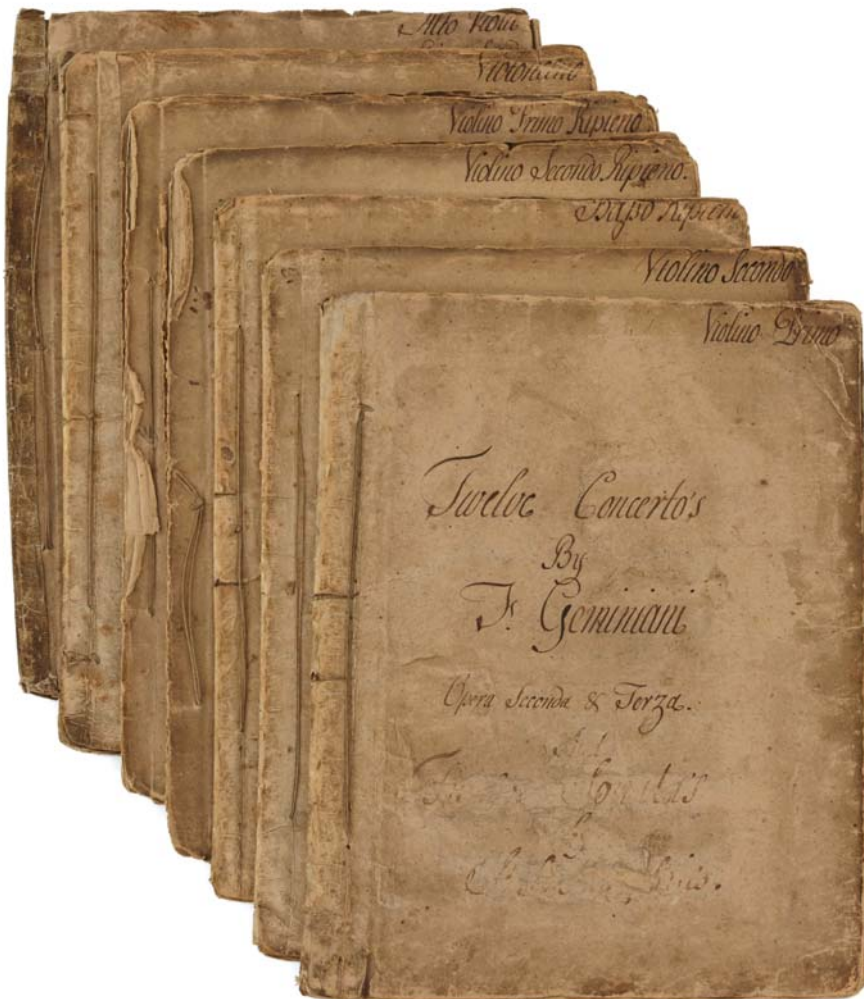 Alto Viola
Violoncello
Violino Primo Ripieno
Violino Secondo Ripieno.
Basso Ripieno
Violino Secondo
Violino Primo
Twelve Concerto's
By
F. Geminiani
Opera Seconda & Terza.
And
Sonita's